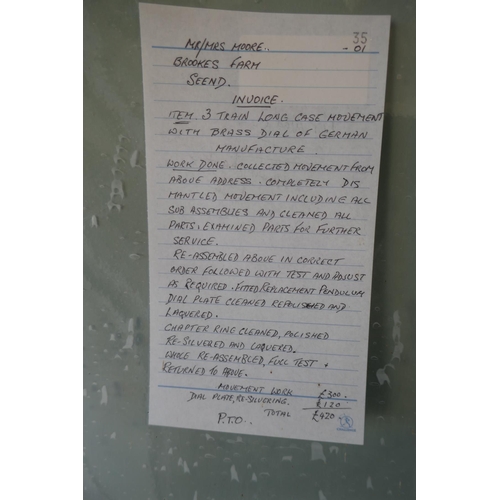 35
MR/MRS MOORE. - 01
BROOKES FARM
SEEND.
INVOICE.
ITEM. 3 TRAIN LONG CASE MOVEMENT
WITH BRASS DIAL OF GERMAN
MANUFACTURE.
WORK DONE. COLLECTED MOVEMENT FROM
ABOVE ADDRESS. COMPLETELY DIS
MANTLED MOVEMENT INCLUDING ALL
SUB ASSEMBLIES AND CLEANED ALL
PARTS, EXAMINED PARTS FOR FURTHER
SERVICE.
RE-ASSEMBLED ABOVE IN CORRECT
ORDER FOLLOWED WITH TEST AND ADJUST
AS REQUIRED. FITTED REPLACEMENT PENDULUM
DIAL PLATE CLEANED REPOLISHED AND
LAQUERED.
CHAPTER RING CLEANED, POLISHED
RE-SILVERED AND LAQUERED.
WHOLE RE-ASSEMBLED, FULL TEST.
RETURNED TO ABOVE.
MOVEMENT WORK £300.
DIAL PLATE, RE-SILVERING. £120
TOTAL £420
P.T.O.